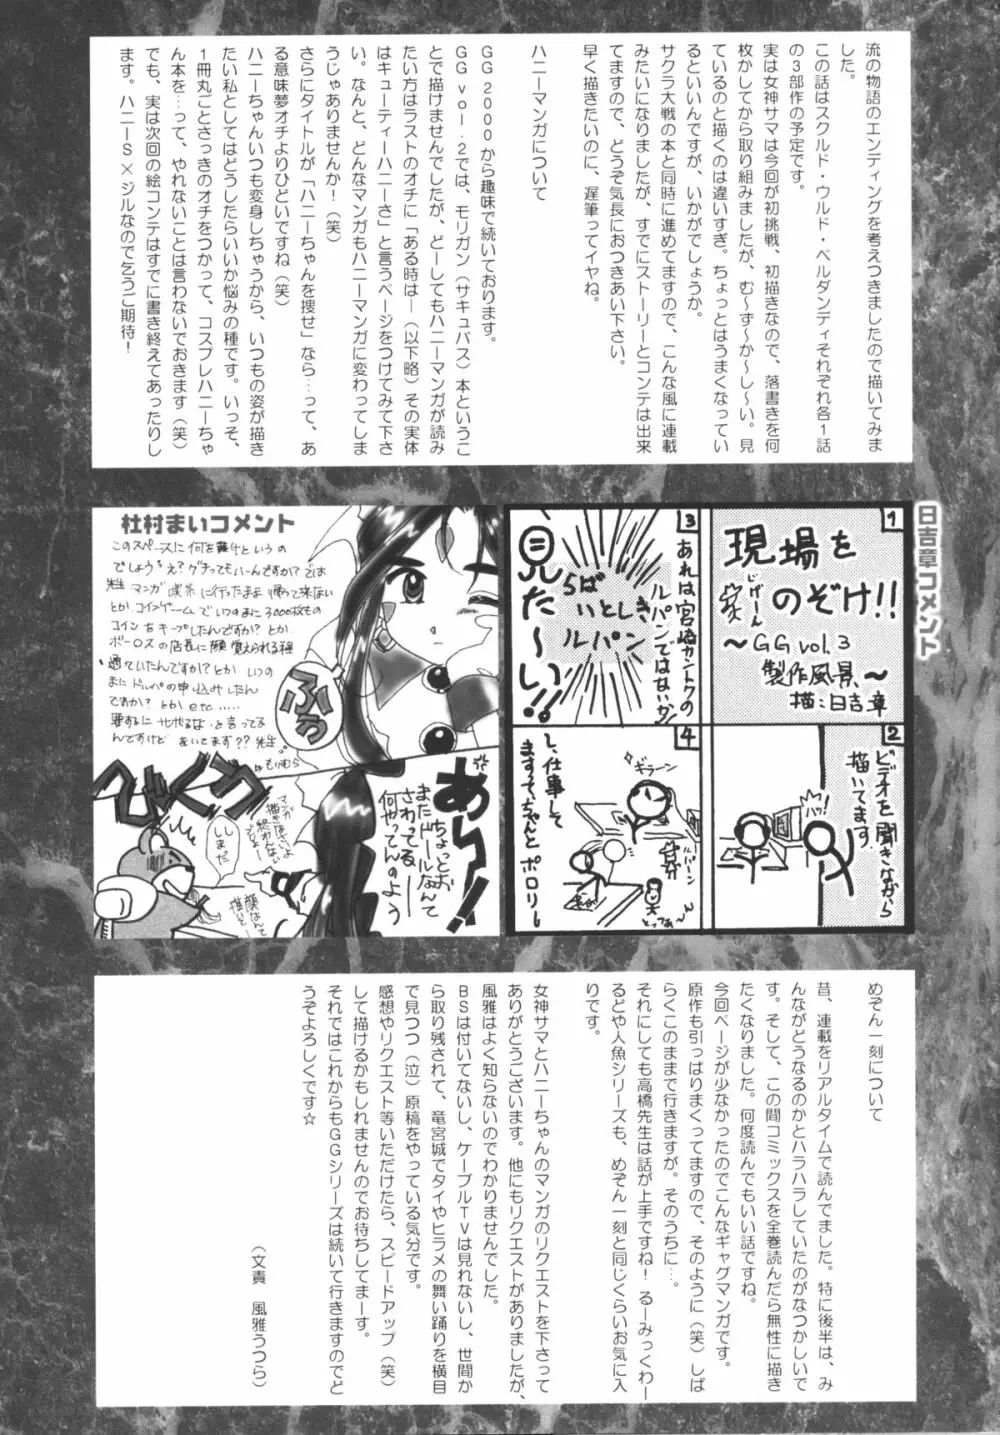 流の物語のエンディングを考えつきましたので描いてみま
した。
この話はスクルド・ウルド・ベルダンディそれぞれ各1話
の3部作の予定です。
実は女神サマは今回が初挑戦、初描きなので、落書きを何
枚かしてから取り組みましたが、む～ず～か～し～い。見
ているのと描くのは違いすぎ。ちょっとはうまくなってい
るといいんですが、いかがでしょうか。
サクラ大戦の本と同時に進めてますので、こんな風に連載
みたいになりましたが、すでにストーリーとコンテは出来
てますので、どうぞ気長におつきあい下さい。
早く描きたいのに、遅筆ってイヤね。
ハニーマンガについて
GG2000から趣味で続いております。
GGvol.2では、モリガン(サキュバス)本というこ
とで描けませんでしたが、どーしてもハニーマンガが読み
たい方はラストのオチに「ある時は―(以下略)その実体
はキューティーハニーさ」と言うページをつけてみて下さ
い。なんと、どんなマンガもハニーマンガに変わってしま
うじゃありませんか!(笑)
さらにタイトルが「ハニーちゃんを捜せ」なら…って、あ
る意味夢オチよりひどいですね(笑)
ハニーちゃんいつも変身しちゃうから、いつもの姿が描き
たい私としてはどうしたらいいか悩みの種です。いっそ、
1冊丸ごとさっきのオチをつかって、コスプレハニーちゃ
ん本を…って、やれないことは言わないでおきます(笑)
でも、実は次回の絵コンテはすでに書き終えてあったりし
ます。ハニーS×ジルなので乞うご期待!
日吉章コメント
1
現場を
のぞけ!!
～GG vol.3
製作風景～
描:日吉章
2
ビデオを聞きながら
描いてます。
3
あれは宮崎カントクの
ルパンではないか!
らぱ
いとしき
ルパン
見た～い!!
4
ギラーン
ルパーン
とっつぁ～ん
し、仕事して
ますって、ちゃんと
ポロリー
杜村まいコメント
このスペースに何を書けというの
でしょうえ?グチってもいーんですか?では
先生マンガ喫茶に行ったまま帰って来ない
とかコインゲームでいつのまに3000枚もの
コインをキープしたんですか?とか
ボーロスの店長に顔覚えられる程
通ていたんですか?とか いつの
まにドルパの申込みしたん
ですか? とか etc.....
要するにサボるな と言ってる
んですけど きいてます?? 先生
もりむら
ふぅ
あらー!
ちょっとお
またドールなんて
さわってる―
何やってんのよう
びくぅ
しまだ
めぞん一刻について
昔、連載をリアルタイムで読んでました。特に後半は、み
んながどうなるのかとハラハラしていたのがなつかしいで
す。そして、この間コミックスを全巻読んだら無性に描き
たくなりました。何度読んでもいい話ですね。
今回ページが少なかったのでこんなギャグマンガです。
原作も引っぱりまくってますので、そのように(笑)しば
らくこのままで行きますが。そのうちに…。
それにしても高橋先生は話が上手ですね!るーみっくわー
るどや人魚シリーズも、めぞん一刻と同じくらいお気に入
りです。
女神サマとハニーちゃんのマンガのリクエストを下さって
ありがとうございます。他にもリクエストがありましたが、
風雅はよく知らないのでわかりませんでした。
BSは付いてないし、ケーブルTVは見れないし、世間か
ら取り残されて、竜宮城でタイやヒラメの舞い踊りを横目
で見つつ(泣)原稿をやっている気分です。
感想やリクエスト等いただけたら、スピードアップ(笑)
して描けるかもしれませんのでお待ちしてまーす。
それではこれからもGGシリーズは続いて行きますのでど
うぞよろしくです☆
(文責 風雅うつら)